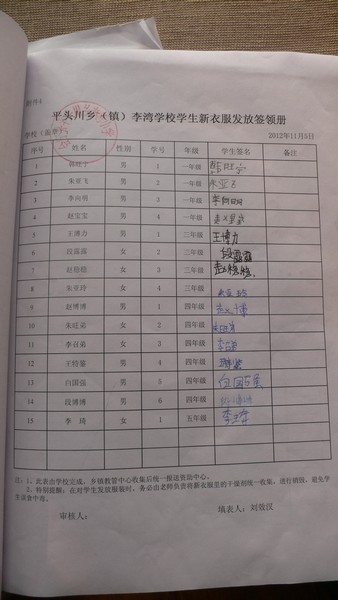 附件4
平头川乡（镇）李湾学校学生新衣服发放签领册
学校（盖章）
2012年11月5日
序号 姓名 性别 学号 年级 学生签名 备注
1 男 1 一年级
2 朱亚飞 男 2 一年级 朱亚飞
3 李向明 男 3 一年级 李向明
4 赵宝宝 男 4 一年级 赵宝宝
5 王博力 男 1 三年级 王博力
6 段露露 女 2 三年级 段露露
7 赵稳稳 女 3 三年级 赵稳稳
8 朱亚玲 女 4 三年级
9 赵博博 男 1 四年级 博
10 朱旺弟 女 2 四年级
11 李召弟 女 3 四年级
12 王特鉴 男 4 四年级
13 白国强 男 5 四年级 白国强
14 段博博 男 6 四年级
15 李琦 女 1 五年级 李琦
注：1、此表由学校完成，乡镇教管中心收集后统一报送资助中心。
2、特别提醒：在对学生发放服装时，务必由老师负责将新衣服里的干燥剂统一收集，进行销毁，避免学
生误食中毒。
审核人： 填表人：刘效汉